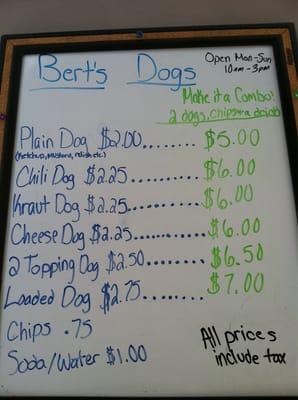 Bert's Dogs
Open Mon-Sun
10am-3pm
Make it a Combo!
2 dogs, chips + a drink
Plain Dog $2.00........ $5.00
(Ketchup, Mustard, relish, etc.)
Chili Dog $2.25.......... $6.00
Kraut Dog $2.25.......... $6.00
Cheese Dog $2.25........ $6.00
2 Topping Dog $2.50........ $6.50
Loaded Dog $2.75........ $7.00
Chips .75
Soda/Water $1.00
All prices
include tax